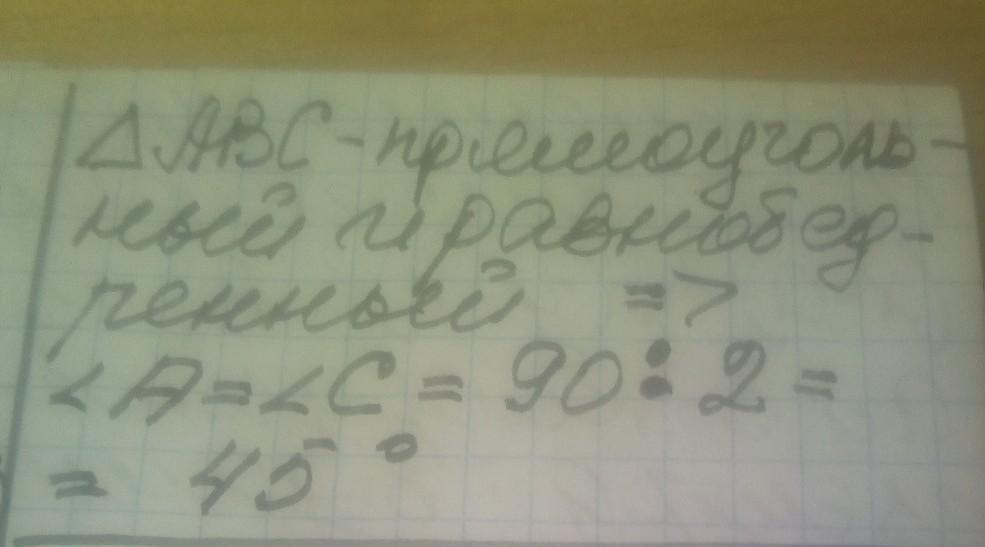 △ABC - прямоуголь-
ный и равнобед-
ренный =>
∠A=∠C = 90:2=
= 45°